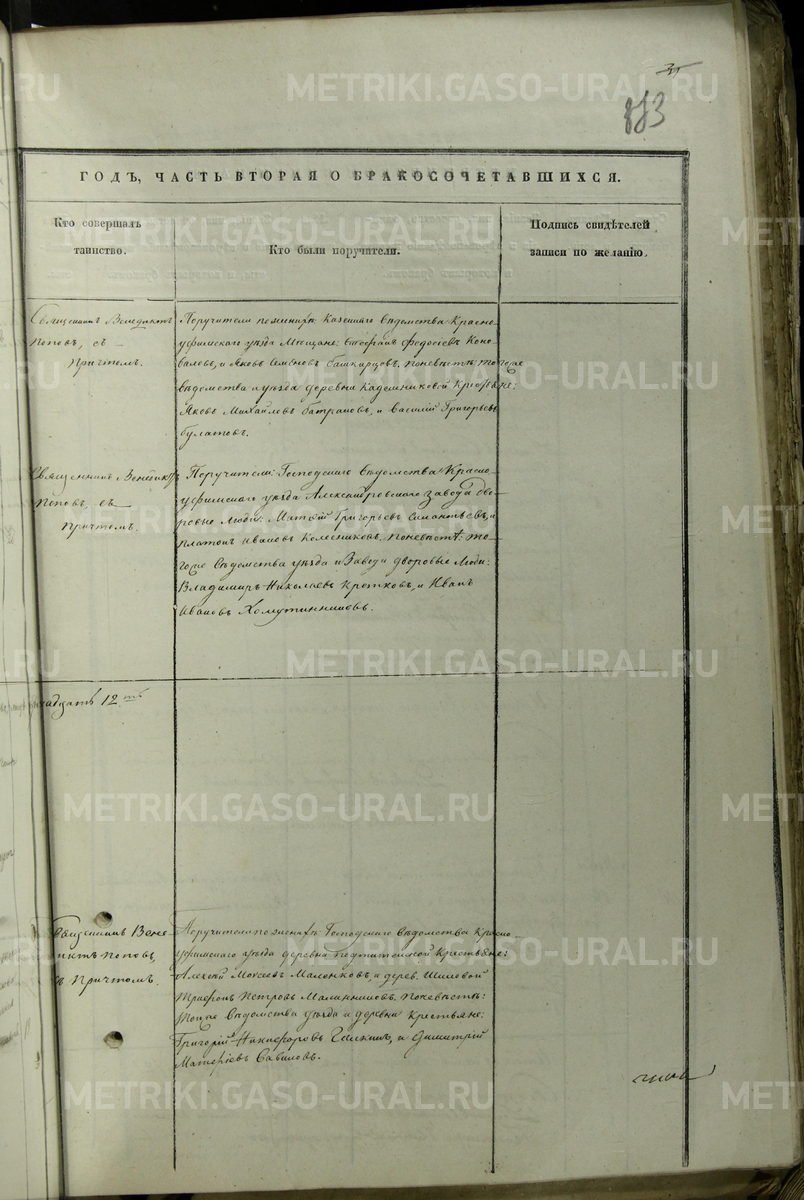 METRIKI.GASO-URAL.RU
883
ГОДЪ, ЧАСТЬ ВТОРАЯ О БРАКОСОЧЕТАВШИХСЯ.
Кто совершалъ
таинство.
Кто были поручители.
Подпись свидѣтелей
записи по желанію.
Священникъ Венедиктъ
Поповъ, съ
Причтомъ.
Поручители по женихѣ: Казеннаго вѣдомства Красно-
уфимскаго уѣзда Мещане: Федосѣевъ Коно-
валовъ, и Яковъ Семеновъ Башкирцовъ. По невѣстѣ: тогоже
вѣдомства и уѣзда деревни Крестьяне:
Яковъ Михайловъ Батраковъ, и Василій Григорьевъ
Булатовъ.
Священникъ Венедиктъ
Поповъ, съ
Причтомъ.
Поручители: Господскаго вѣдомства Красно-
уфимскаго уѣзда Александровскаго завода дво-
ровые люди: Матвѣй Григорьевъ и
Платонъ Ивановъ Колесниковъ. По невѣстѣ: то-
гоже вѣдомства уѣзда и завода дворовые люди:
Владимиръ Николаевъ Кротковъ, и Иванъ
Ивановъ Хомутинниковъ.
12
Священникъ Вене-
диктъ Поповъ,
съ Причтомъ.
Поручители по женихѣ: Господскаго вѣдомства Красно-
уфимскаго уѣзда деревни Крестьяне:
Алексѣй Моисеевъ Маленковъ, и дерев. Шиловой
Трифонъ Петровъ Малинниковъ. По невѣстѣ:
Тогоже вѣдомства уѣзда и деревни Крестьяне:
Григорій Никифоровъ и Димитрій
Савиновъ.